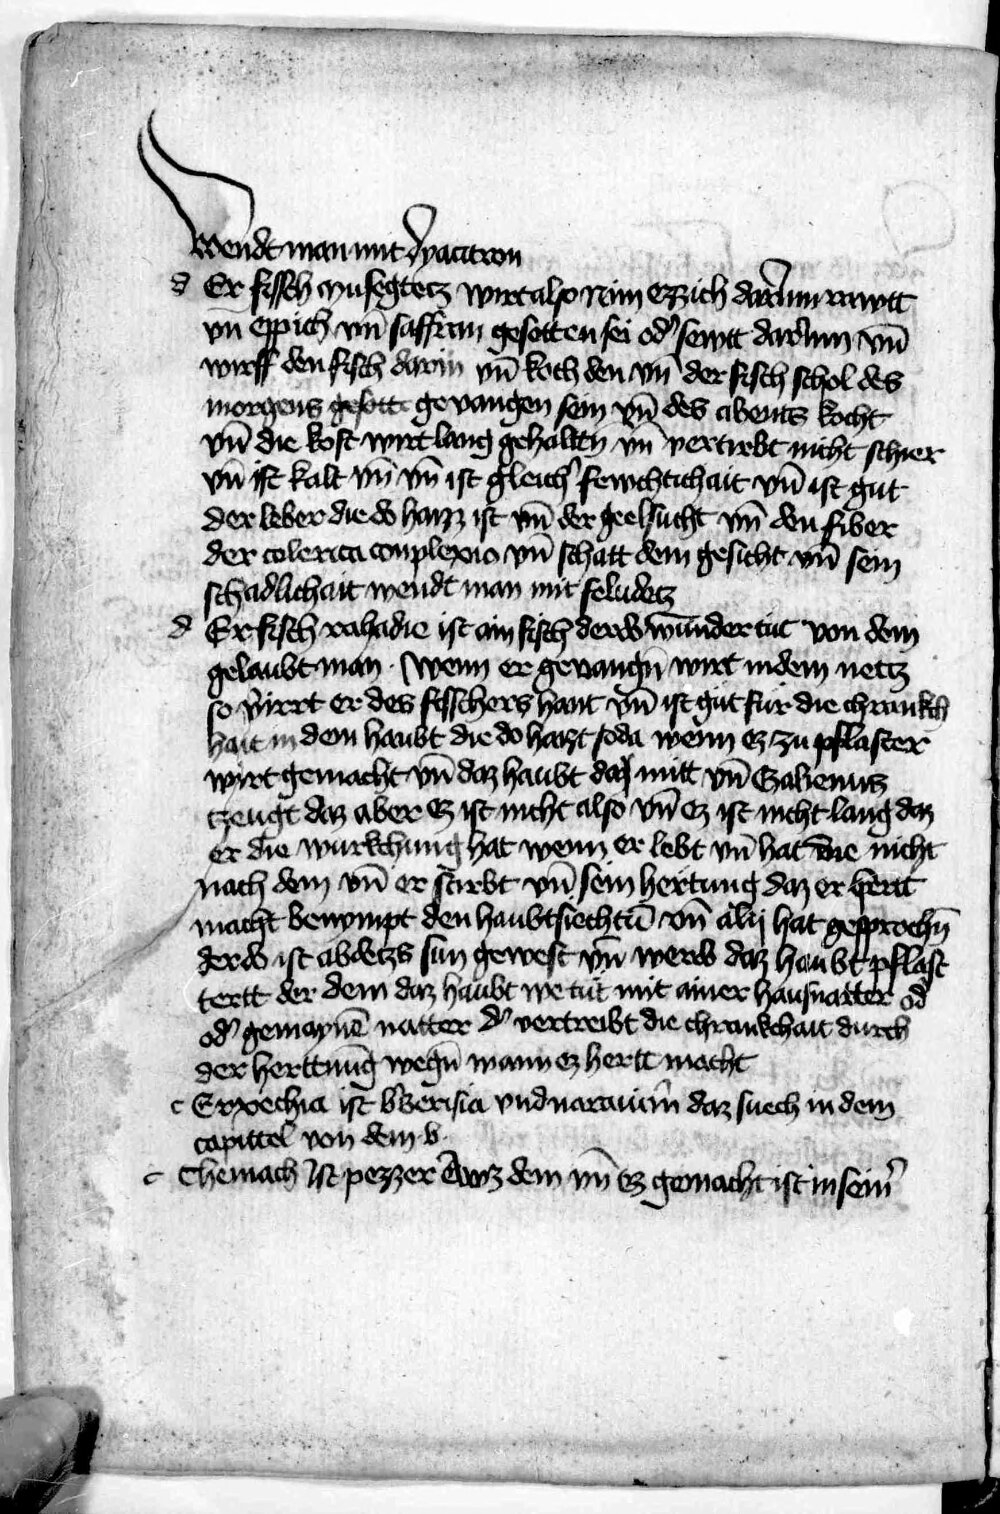 Wendt man mit dyacitron
d Er fissch musegtetz wirt also Nim ezzich darinn rawtt
vn̄ eppich vn̄ saffran gesotten sei od' sewtt darinn vn̄
wirff den fisch darin vn̄ koch den vn̄ der fisch schol des
morgens gesotte gevangen sein vn̄ des abents kocht
vn̄ die kost wirt lang gehaltn̄ vn̄ vertirbt nicht schier
vn̄ ist kalt vn̄ vn̄ ist gleich' fewchtichait vn̄ ist gut
der leber die do haizz ist vn̄ der geelsucht vn̄ den fiber
der colerica conplexio vn̄ schatt dem gesicht vn̄ sein
schadlichait wendt man mit feludetz
d Er fisch rahadie ist ain fisch der do wunder tut von dem
gelaubt man. Wenn er gevangn̄ wirt in dem netz
so v'irrt er des fisschers hant vn̄ ist gut fur die chrankch
hait in dem haubt die do haizt soda wenn ez zu pflaster
wirt gemacht vn̄ daz haubt da mitt vn̄ Galienus
tzeugt daz aber ez ist nicht also vn̄ ez ist nicht lang daz
er die wurkchung hat wenn er lebt vn̄ hat die nicht
nach dem vn̄ er stirbt vn̄ sein hertung daz er hertt
macht benympt den haubtsiechtū vn̄ alij hat gesprochn̄
der do ist abdetzs sun gewest vn̄ wer do daz haubt pflast
tertt der dem daz haubt we tut mit ainer hausnatter od
od' gemaynē natter d' vertreibt die chrankchait durch
der herttung wegn̄ wann ez hertt macht
c Erxechia ist b'berisia vnd naraum̄ daz suech in dem
capittel von dem b.
c Chemach Ist pezzer Awz dem vn̄ ez gemacht ist in sein'